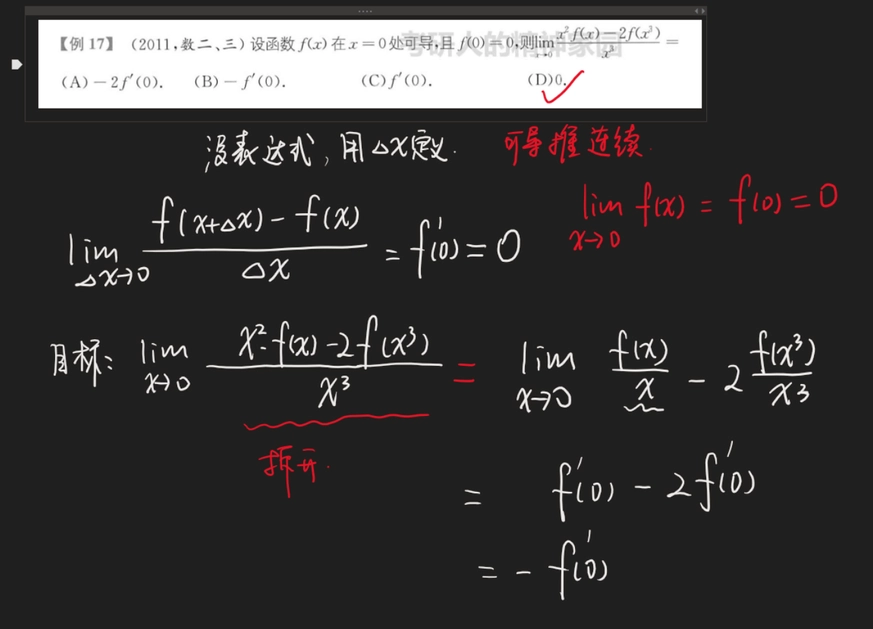 【例 17】 (2011,数二、三)设函数 f(x) 在 x=0 处可导,且 f(0)=0,则lim x²f(x)-2f(x³)/x³ =
考研人的精神家园
(A)-2f′(0). (B)-f′(0). (C)f′(0). (D)0.
没表达式, 用△x定义. 可导推连续.
lim x→0 f(x) = f(0) = 0
lim △x→0 f(x+△x) - f(x) / △x = f′(0) = 0
目标: lim x→0 x²·f(x) - 2f(x³) / x³ = lim x→0 f(x)/x - 2 f(x³)/x³
拆开.
= f′(0) - 2f′(0)
= - f′(0)